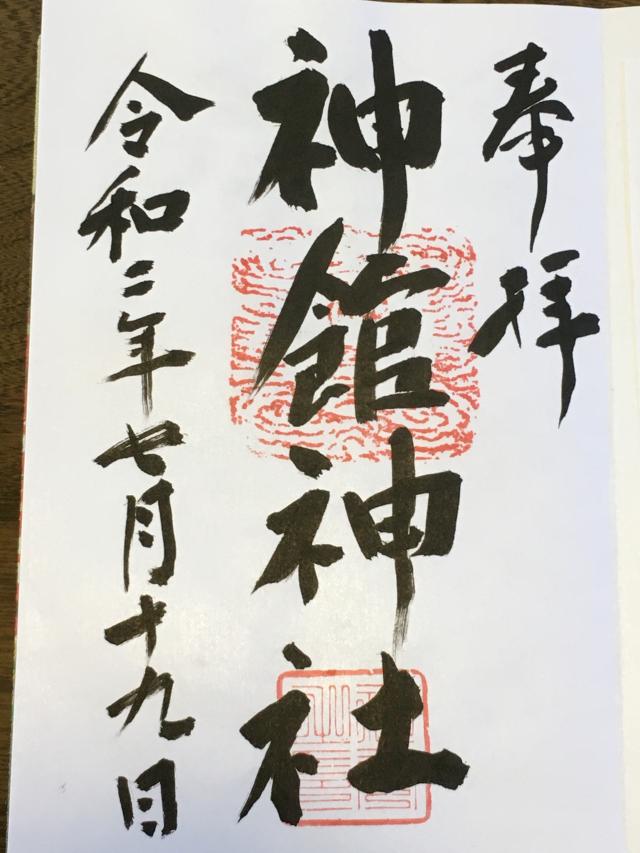 奉拝
神館神社
令和二年七月十九日